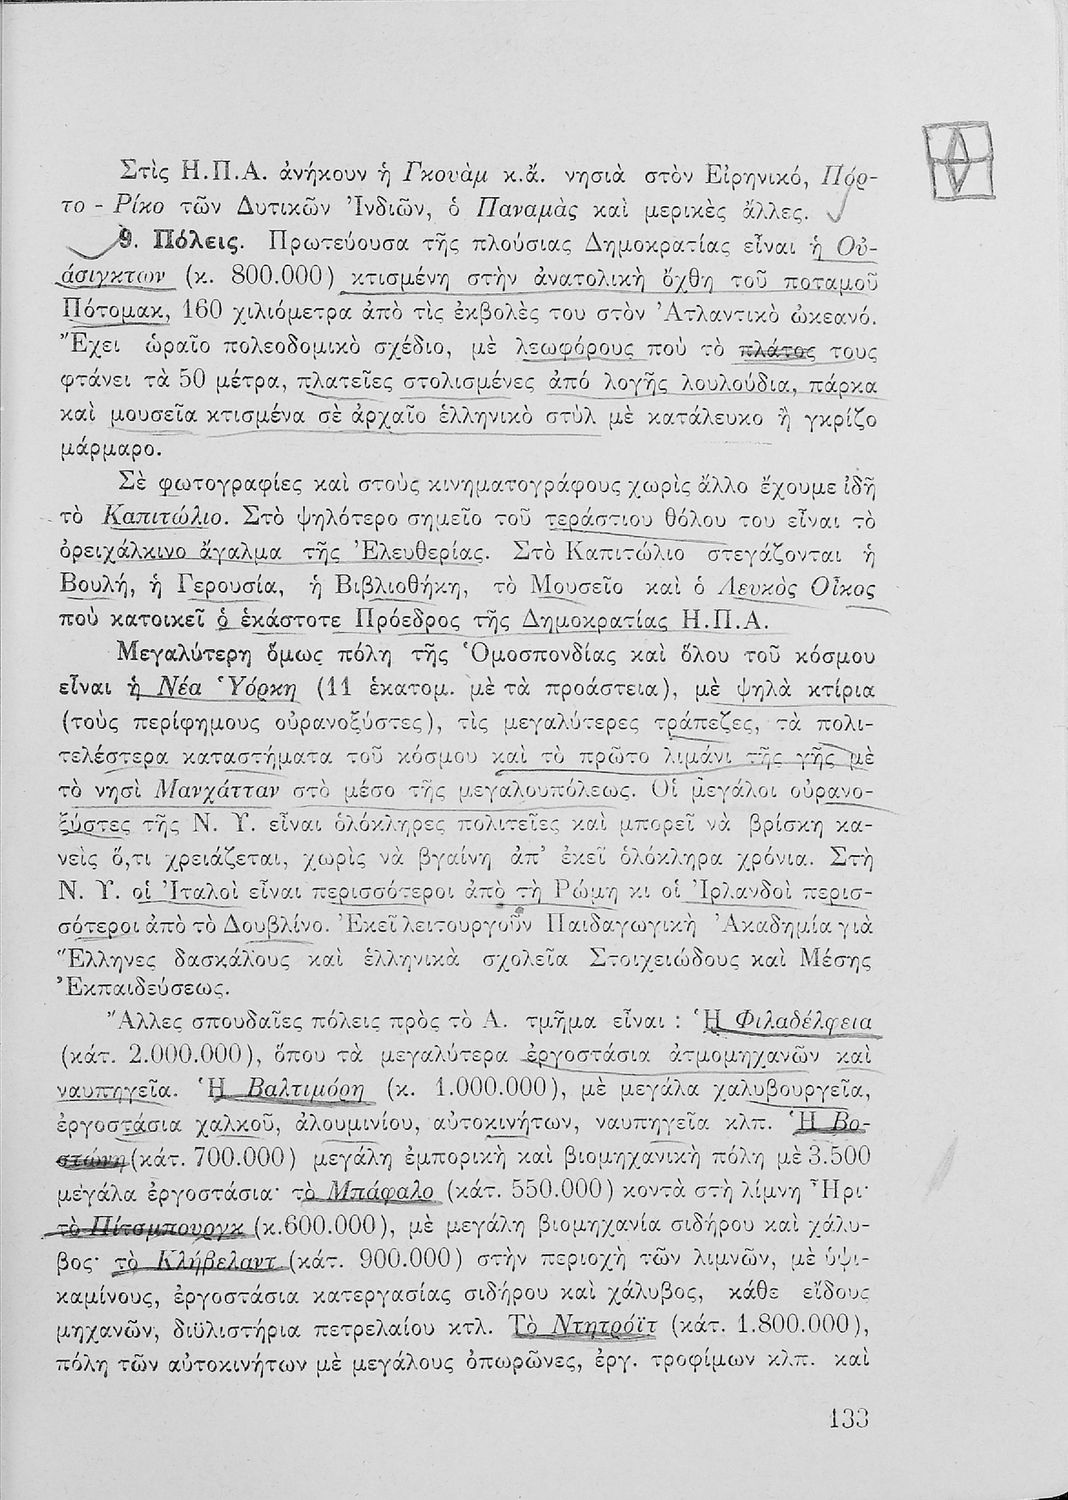 Στὶς Η.Π.Α. ἀνήκουν ἡ Γκουὰμ κ.ἄ. νησιὰ στὸν Εἰρηνικό, Πόρ-
το - Ρίκο τῶν Δυτικῶν Ἰνδιῶν, ὁ Παναμὰς καὶ μερικὲς ἄλλες.
9. Πόλεις. Πρωτεύουσα τῆς πλούσιας Δημοκρατίας εἶναι ἡ Οὐ-
άσιγκτων (κ. 800.000) κτισμένη στὴν ἀνατολικὴ ὄχθη τοῦ ποταμοῦ
Πότομακ, 160 χιλιόμετρα ἀπὸ τὶς ἐκβολὲς του στὸν Ἀτλαντικὸ ὠκεανό.
Ἔχει ὡραῖο πολεοδομικὸ σχέδιο, μὲ λεωφόρους ποὺ τὸ πλάτος τους
φτάνει τὰ 50 μέτρα, πλατεῖες στολισμένες ἀπό λογῆς λουλούδια, πάρκα
καὶ μουσεῖα κτισμένα σὲ ἀρχαῖο ἑλληνικὸ στὺλ μὲ κατάλευκο ἢ γκρίζο
μάρμαρο.
Σὲ φωτογραφίες καὶ στοὺς κινηματογράφους χωρὶς ἄλλο ἔχουμε ἰδῆ
τὸ Καπιτώλιο. Στὸ ψηλότερο σημεῖο τοῦ τεράστιου θόλου του εἶναι τὸ
ὀρειχάλκινο ἄγαλμα τῆς Ἐλευθερίας. Στὸ Καπιτώλιο στεγάζονται ἡ
Βουλή, ἡ Γερουσία, ἡ Βιβλιοθήκη, τὸ Μουσεῖο καὶ ὁ Λευκὸς Οἶκος
ποὺ κατοικεῖ ὁ ἑκάστοτε Πρόεδρος τῆς Δημοκρατίας Η.Π.Α.
Μεγαλύτερη ὅμως πόλη τῆς Ὁμοσπονδίας καὶ ὅλου τοῦ κόσμου
εἶναι ἡ Νέα Ὑόρκη (11 ἑκατομ. μὲ τὰ προάστεια), μὲ ψηλὰ κτίρια
(τοὺς περίφημους οὐρανοξύστες), τὶς μεγαλύτερες τράπεζες, τὰ πολι-
τελέστερα καταστήματα τοῦ κόσμου καὶ τὸ πρῶτο λιμάνι τῆς γῆς μὲ
τὸ νησὶ Μανχάτταν στὸ μέσο τῆς μεγαλουπόλεως. Οἱ μεγάλοι οὐρανο-
ξύστες τῆς Ν. Υ. εἶναι ὁλόκληρες πολιτεῖες καὶ μπορεῖ νὰ βρίσκη κα-
νεὶς ὅ,τι χρειάζεται, χωρὶς νὰ βγαίνη ἀπ' ἐκεῖ ὁλόκληρα χρόνια. Στὴ
Ν. Υ. οἱ Ἰταλοὶ εἶναι περισσότεροι ἀπὸ τὴ Ρώμη κι οἱ Ἰρλανδοὶ περισ-
σότεροι ἀπὸ τὸ Δουβλίνο. Ἐκεῖ λειτουργοῦν Παιδαγωγικὴ Ἀκαδημία γιὰ
Ἕλληνες δασκάλους καὶ ἑλληνικὰ σχολεῖα Στοιχειώδους καὶ Μέσης
Ἐκπαιδεύσεως.
Ἄλλες σπουδαῖες πόλεις πρὸς τὸ Α. τμῆμα εἶναι : Ἡ Φιλαδέλφεια
(κάτ. 2.000.000), ὅπου τὰ μεγαλύτερα ἐργοστάσια ἀτμομηχανῶν καὶ
ναυπηγεῖα. Ἡ Βαλτιμόρη (κ. 1.000.000), μὲ μεγάλα χαλυβουργεῖα,
ἐργοστάσια χαλκοῦ, ἀλουμινίου, αὐτοκινήτων, ναυπηγεῖα κλπ. Ἡ Βο-
στώνη (κάτ. 700.000) μεγάλη ἐμπορικὴ καὶ βιομηχανικὴ πόλη μὲ 3.500
μεγάλα ἐργοστάσια· τὸ Μπάφαλο (κάτ. 550.000) κοντὰ στὴ λίμνη Ἦρι·
τὸ Πίτσμπουργκ (κ.600.000), μὲ μεγάλη βιομηχανία σιδήρου καὶ χάλυ-
βος· τὸ Κλήβελαντ (κάτ. 900.000) στὴν περιοχὴ τῶν λιμνῶν, μὲ ὑψι-
καμίνους, ἐργοστάσια κατεργασίας σιδήρου καὶ χάλυβος, κάθε εἴδους
μηχανῶν, διϋλιστήρια πετρελαίου κτλ. Τὸ Ντητρόϊτ (κάτ. 1.800.000),
πόλη τῶν αὐτοκινήτων μὲ μεγάλους ὀπωρῶνες, ἐργ. τροφίμων κλπ. καὶ
133